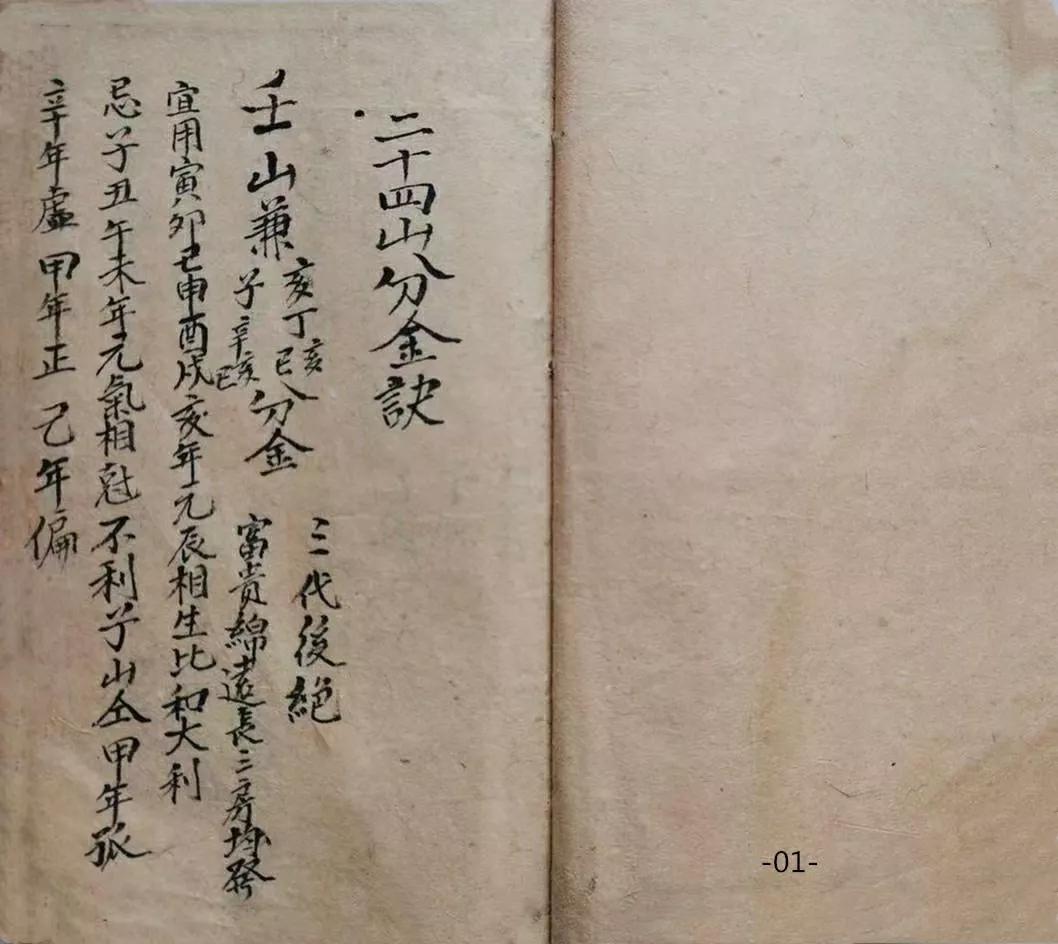 二十四山分金訣
壬山兼
亥丁亥己亥
子辛亥己
分金
三代後絕
富貴綿遠長三房均發
宜用寅卯巳申酉戌亥年元辰相生比和大利
忌子丑午未年元氣相尅不利子山仝甲年孤
辛年虛甲年正己年偏
-01-